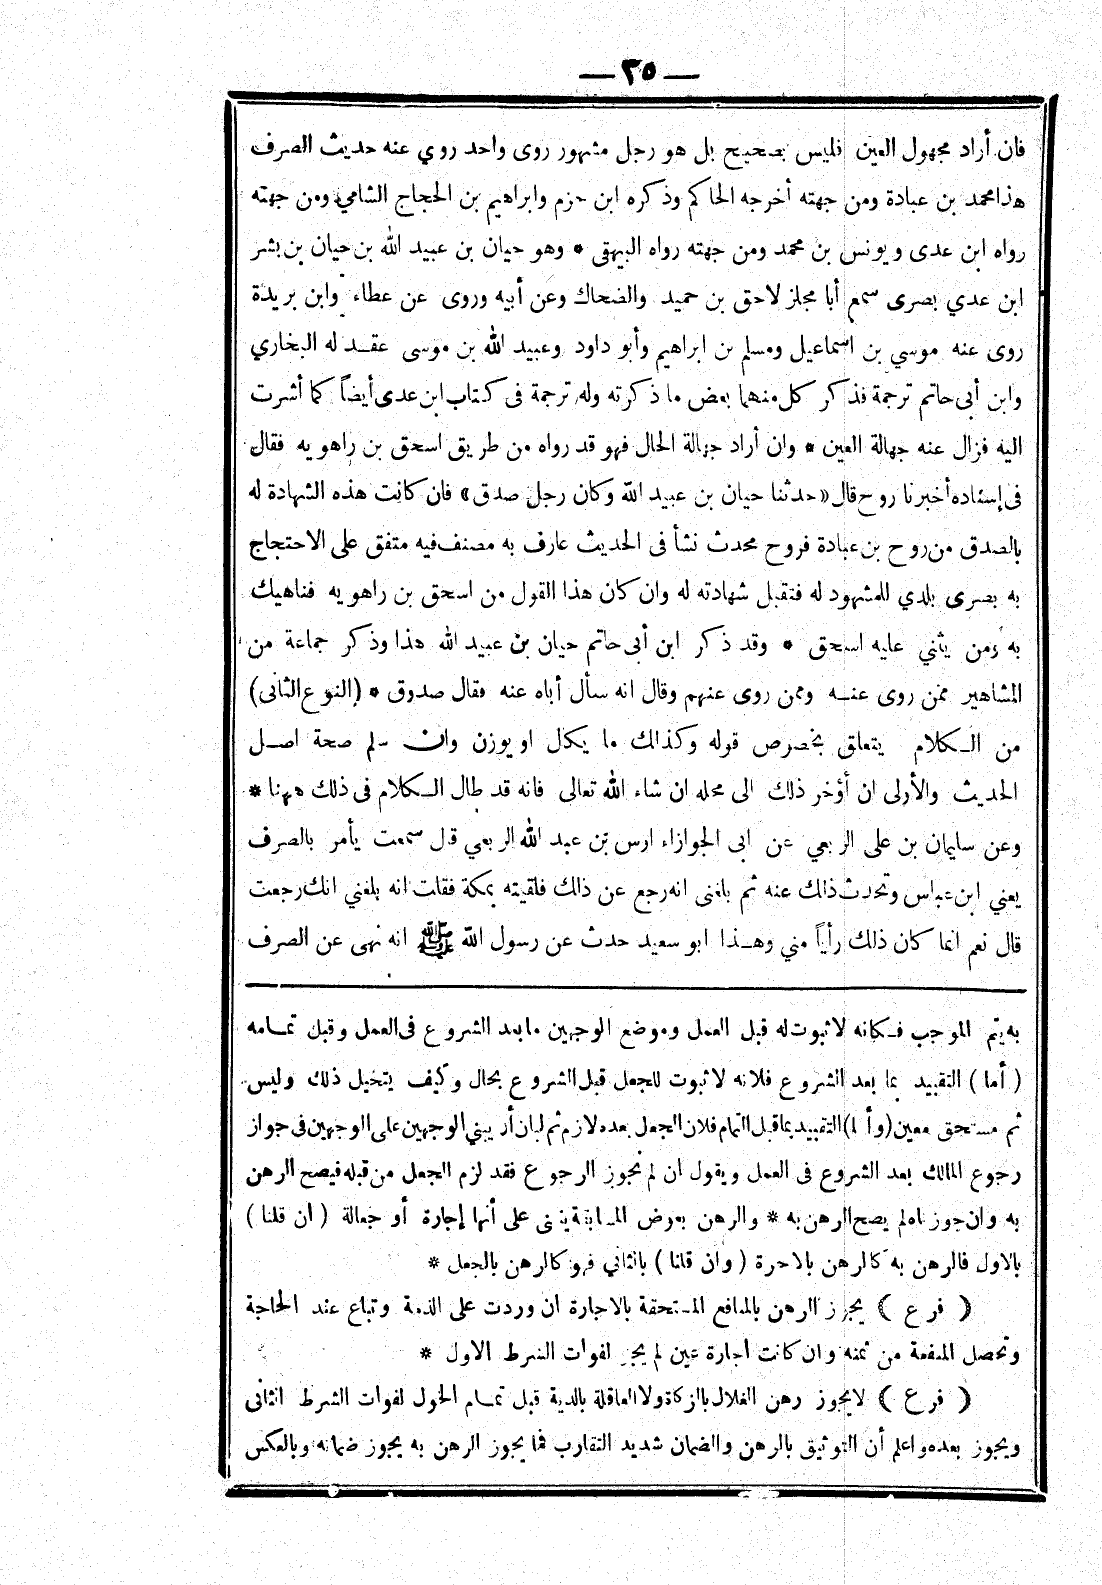 — ٣٥ —
فان أراد مجهول العين فليس بصحيح بل هو رجل مشهور روى واحد روي عنه حديث الصرف
هذا محمد بن عبادة ومن جهته أخرجه الحاكم وذكره ابن حزم وابراهيم بن الحجاج الشامي ومن جهته
رواه ابن عدى ويونس بن محمد ومن جهته رواه البيهقى * وهو حيان بن عبيد الله بن حيان بن بشر
ابن عدي بصرى سمع أبا مجلز لاحق بن حميد والضحاك وعن أبيه وروى عن عطاء وابن بريدة
روى عنه موسي بن اسماعيل ومسلم بن ابراهيم وأبو داود وعبيد الله بن موسى عقد له البخاري
وابن أبى حاتم ترجمة فذكر كل منهما بعض ما ذكرته وله ترجمة فى كتاب ابن عدى أيضاً كما أشرت
اليه فزال عنه جهالة العين * وان أراد جهالة الحال فهو قد رواه من طريق اسحق بن راهويه فقال
فى إسناده أخبرنا روح قال «حدثنا حيان بن عبيد الله وكان رجل صدق» فان كانت هذه الشهادة له
بالصدق من روح بن عبادة فروح محدث نشأ فى الحديث عارف به مصنف فيه متفق على الاحتجاج
به بصرى بلدي للمشهود له فتقبل شهادته له وان كان هذا القول من اسحق بن راهويه فناهيك
به ومن يثني عليه اسحق * وقد ذكر ابن أبى حاتم حيان بن عبيد الله هذا وذكر جماعة من
المشاهير ممن روى عنه وممن روى عنهم وقال انه سأل أباه عنه فقال صدوق * (النوع الثانى)
من الكلام يتعلق بخصوص قوله وكذالك ما يكال او يوزن وان سلم صحة اصل
الحديث والأولى ان أؤخر ذلك الى محله ان شاء الله تعالى فانه قد طال الكلام فى ذلك ههنا *
وعن سليمان بن على الربعي عن ابى الجوازاء اوس بن عبد الله الربعي قال سمعت يأمر بالصرف
يعني ابن عباس وتحدث ذلك عنه ثم بلغنى انه رجع عن ذلك فلقيته بمكة فقلت انه بلغني انك رجعت
قال نعم انما كان ذلك رأياً مني وهذا ابو سعيد حدث عن رسول الله ﷺ انه نهى عن الصرف
به يتم الموجب فكانه لا ثبوت له قبل العمل وموضع الوجهين ما بعد الشروع فى العمل وقبل تمامه
( أما ) التقييد بما بعد الشروع فلانه لا ثبوت للجعل قبل الشروع بحال وكيف يتخيل ذلك وليس
ثم مستحق معين (وأما) التقييد بما قبل التمام فلان الجعل بعده لازم ثم لبان أن يبني الوجهين على الوجهين فى جواز
رجوع المالك بعد الشروع فى العمل ويقول ان لم نجوز الرجوع فقد لزم الجعل من قبله فيصح الرهن
به وان جوزناه لم يصح الرهن به * والرهن بعوض المسابقة ينبنى على أنها إجارة أو جعالة ( ان قلنا )
بالاول فالرهن به كالرهن بالاجرة ( وان قلنا ) بالثاني فهو كالرهن بالجعل *
( فرع ) يجوز الرهن بالمنافع المستحقة بالاجارة ان وردت على الذمة وتباع عند الحاجة
وتحصل المنفعة من ثمنه وان كانت اجارة عين لم يجز لفوات الشرط الاول *
( فرع ) لا يجوز رهن الغلال بالزكاة ولا العاقلة بالدية قبل تمام الحول لفوات الشرط الثانى
ويجوز بعده واعلم أن التوثيق بالرهن والضمان شديد التقارب فما يجوز الرهن به يجوز ضمانه وبالعكس